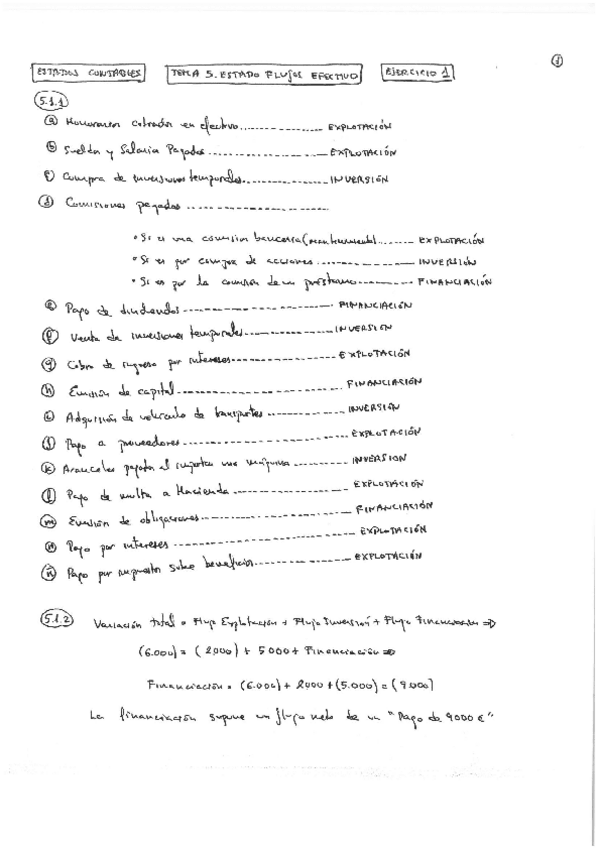 1
ESTADOS CONTABLES TEMA 5. ESTADO FLUJOS EFECTIVO EJERCICIO 1
5.1.1
a Honorarios cobrados en efectivo.............. EXPLOTACIÓN
b Sueldos y Salarios Pagados .............. EXPLOTACIÓN
c Compra de inversiones temporales.............. INVERSIÓN
d Comisiones pagadas ..............
• Si es una comisión bancaria (mantenimiento)....... EXPLOTACIÓN
• Si es por compra de acciones .............. INVERSIÓN
• Si es por la comisión de un préstamo ........ FINANCIACIÓN
e Pago de dividendos .............. FINANCIACIÓN
f Venta de inversiones temporales.............. INVERSIÓN
g Cobro de ingresos por intereses.............. EXPLOTACIÓN
h Emisión de capital.............. FINANCIACIÓN
i Adquisición de vehículo de transportes .............. INVERSIÓN
j Pago a proveedores .............. EXPLOTACIÓN
k Aranceles pagados al importar una máquina .......... INVERSION
l Pago de multa a Hacienda .............. EXPLOTACIÓN
m Emisión de obligaciones.............. FINANCIACIÓN
n Pago por intereses .............. EXPLOTACIÓN
ñ Pago por impuestos sobre beneficios.............. EXPLOTACIÓN
5.1.2 Variación total = Flujo Explotación + Flujo Inversión + Flujo Financiación ⇒
(6.000) = (2000) + 5000 + Financiación ⇒
Financiación = (6.000) + 2000 + (5.000) = (9.000)
La financiación supone un flujo neto de un "Pago de 9000 €"